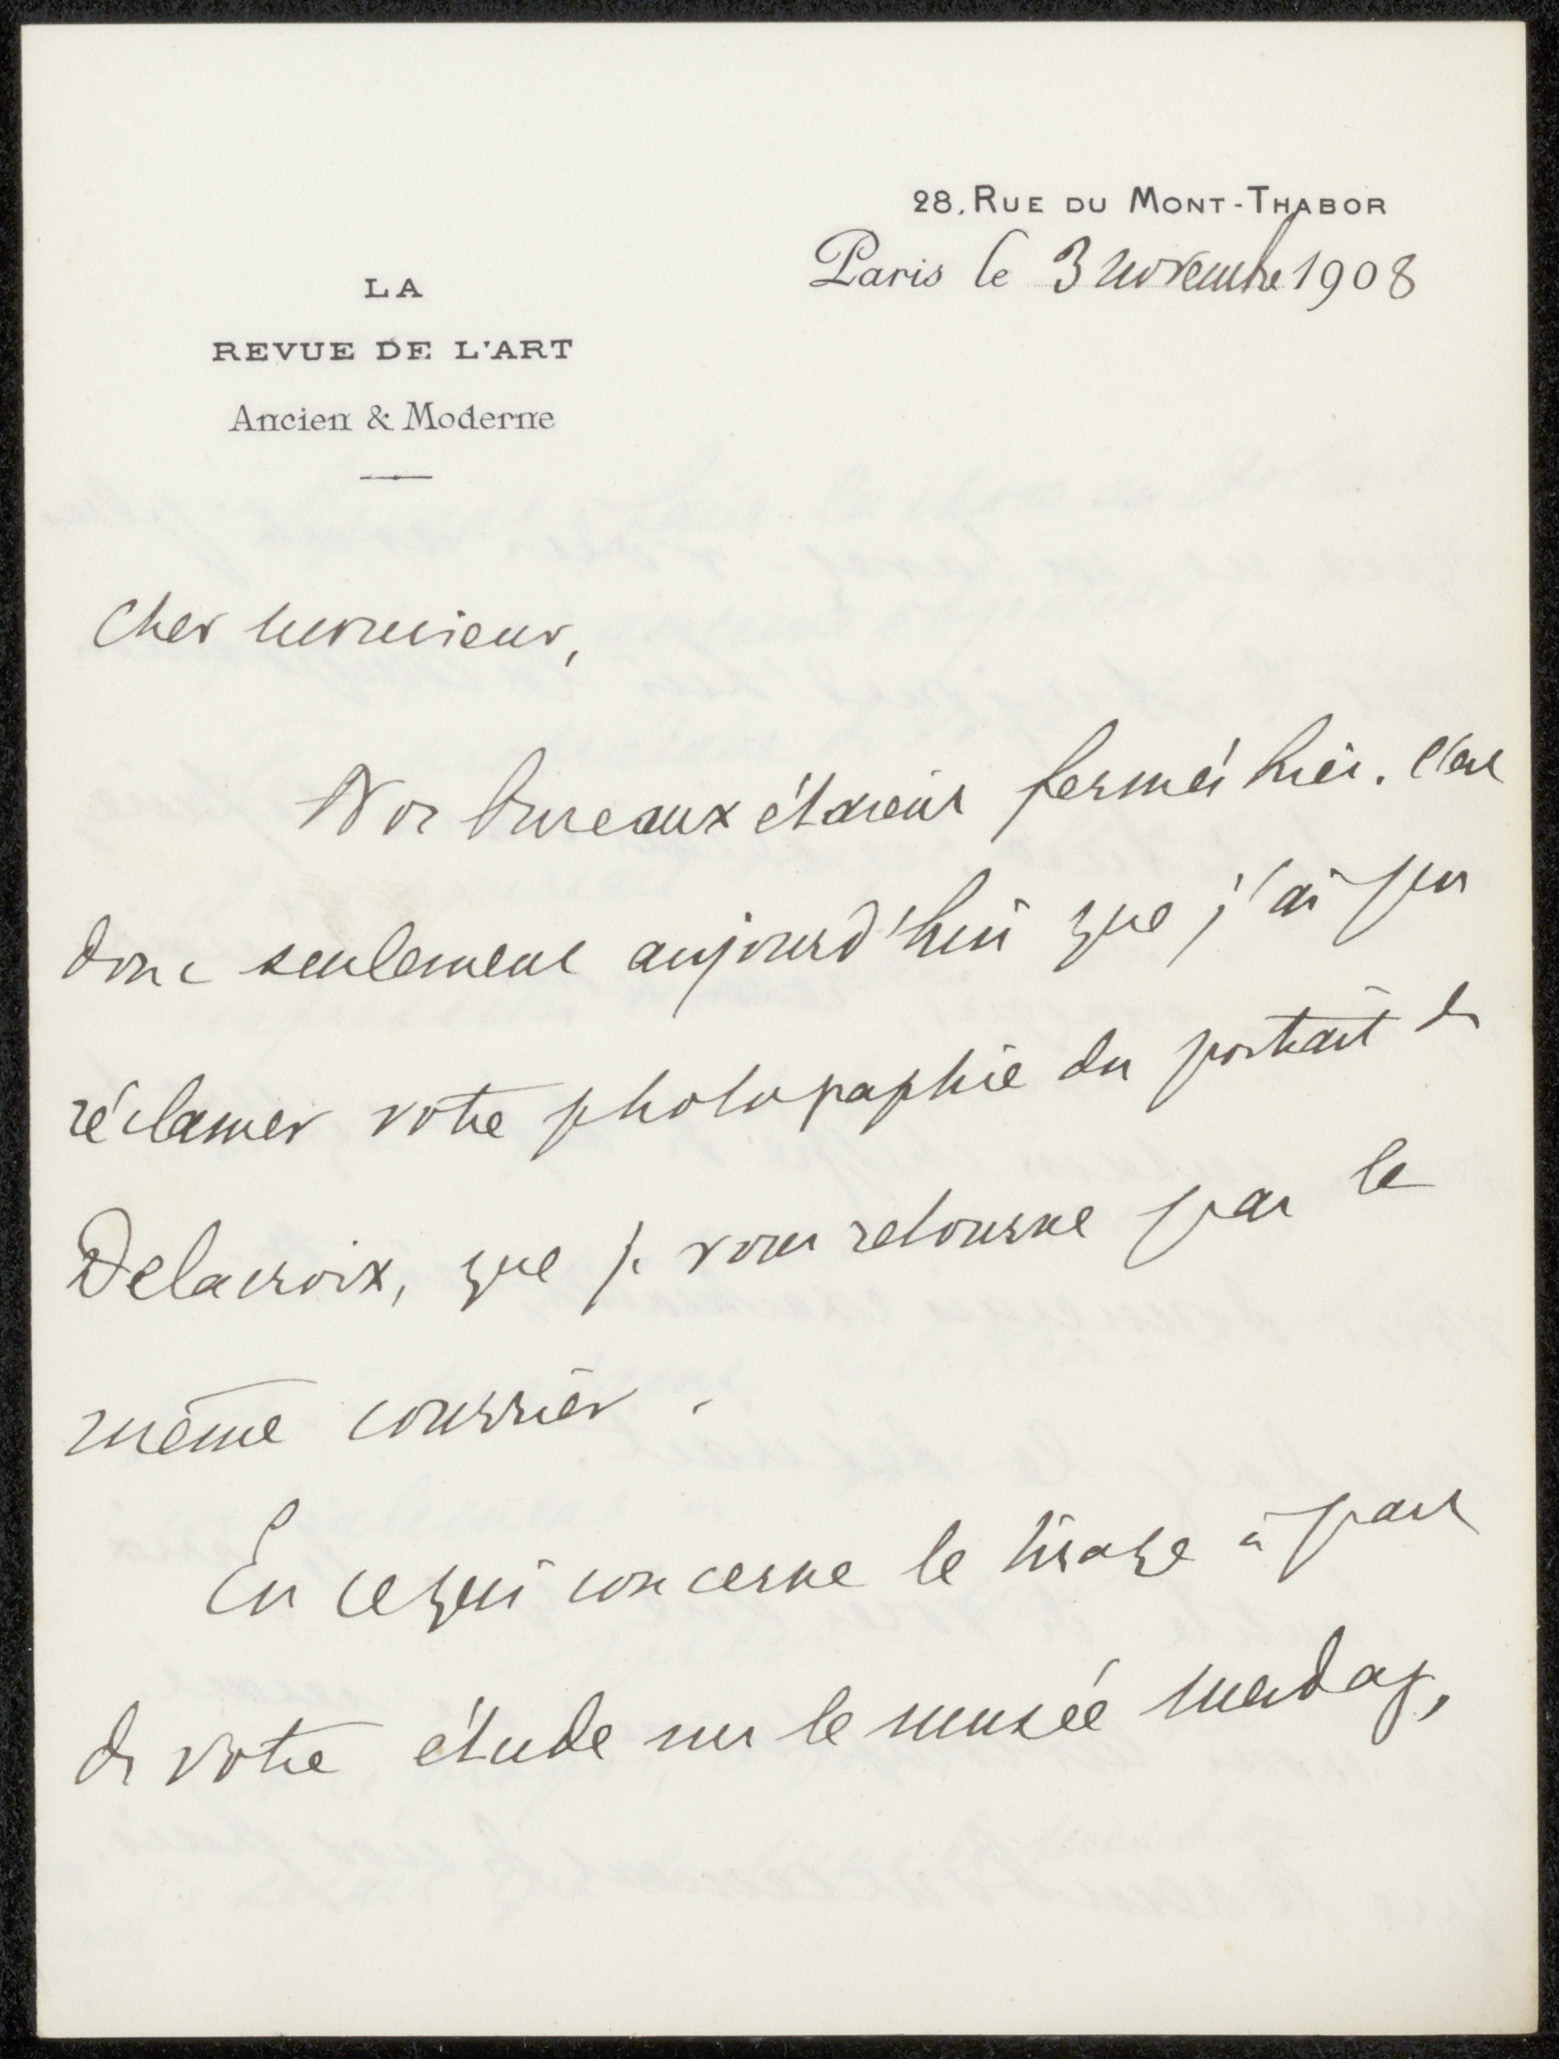 28, RUE DU MONT-THABOR
Paris le 3 novembre 1908
LA
REVUE DE L'ART
Ancien & Moderne
Cher monsieur,
Nos bureaux étaient fermés hier. C'est
donc seulement aujourd'hui que j'ai pu
réclamer votre photographie du portrait de
Delacroix, que je vous retourne par le
même courrier.
En ce qui concerne le tirage à part
de votre étude sur le musée Mesdag,